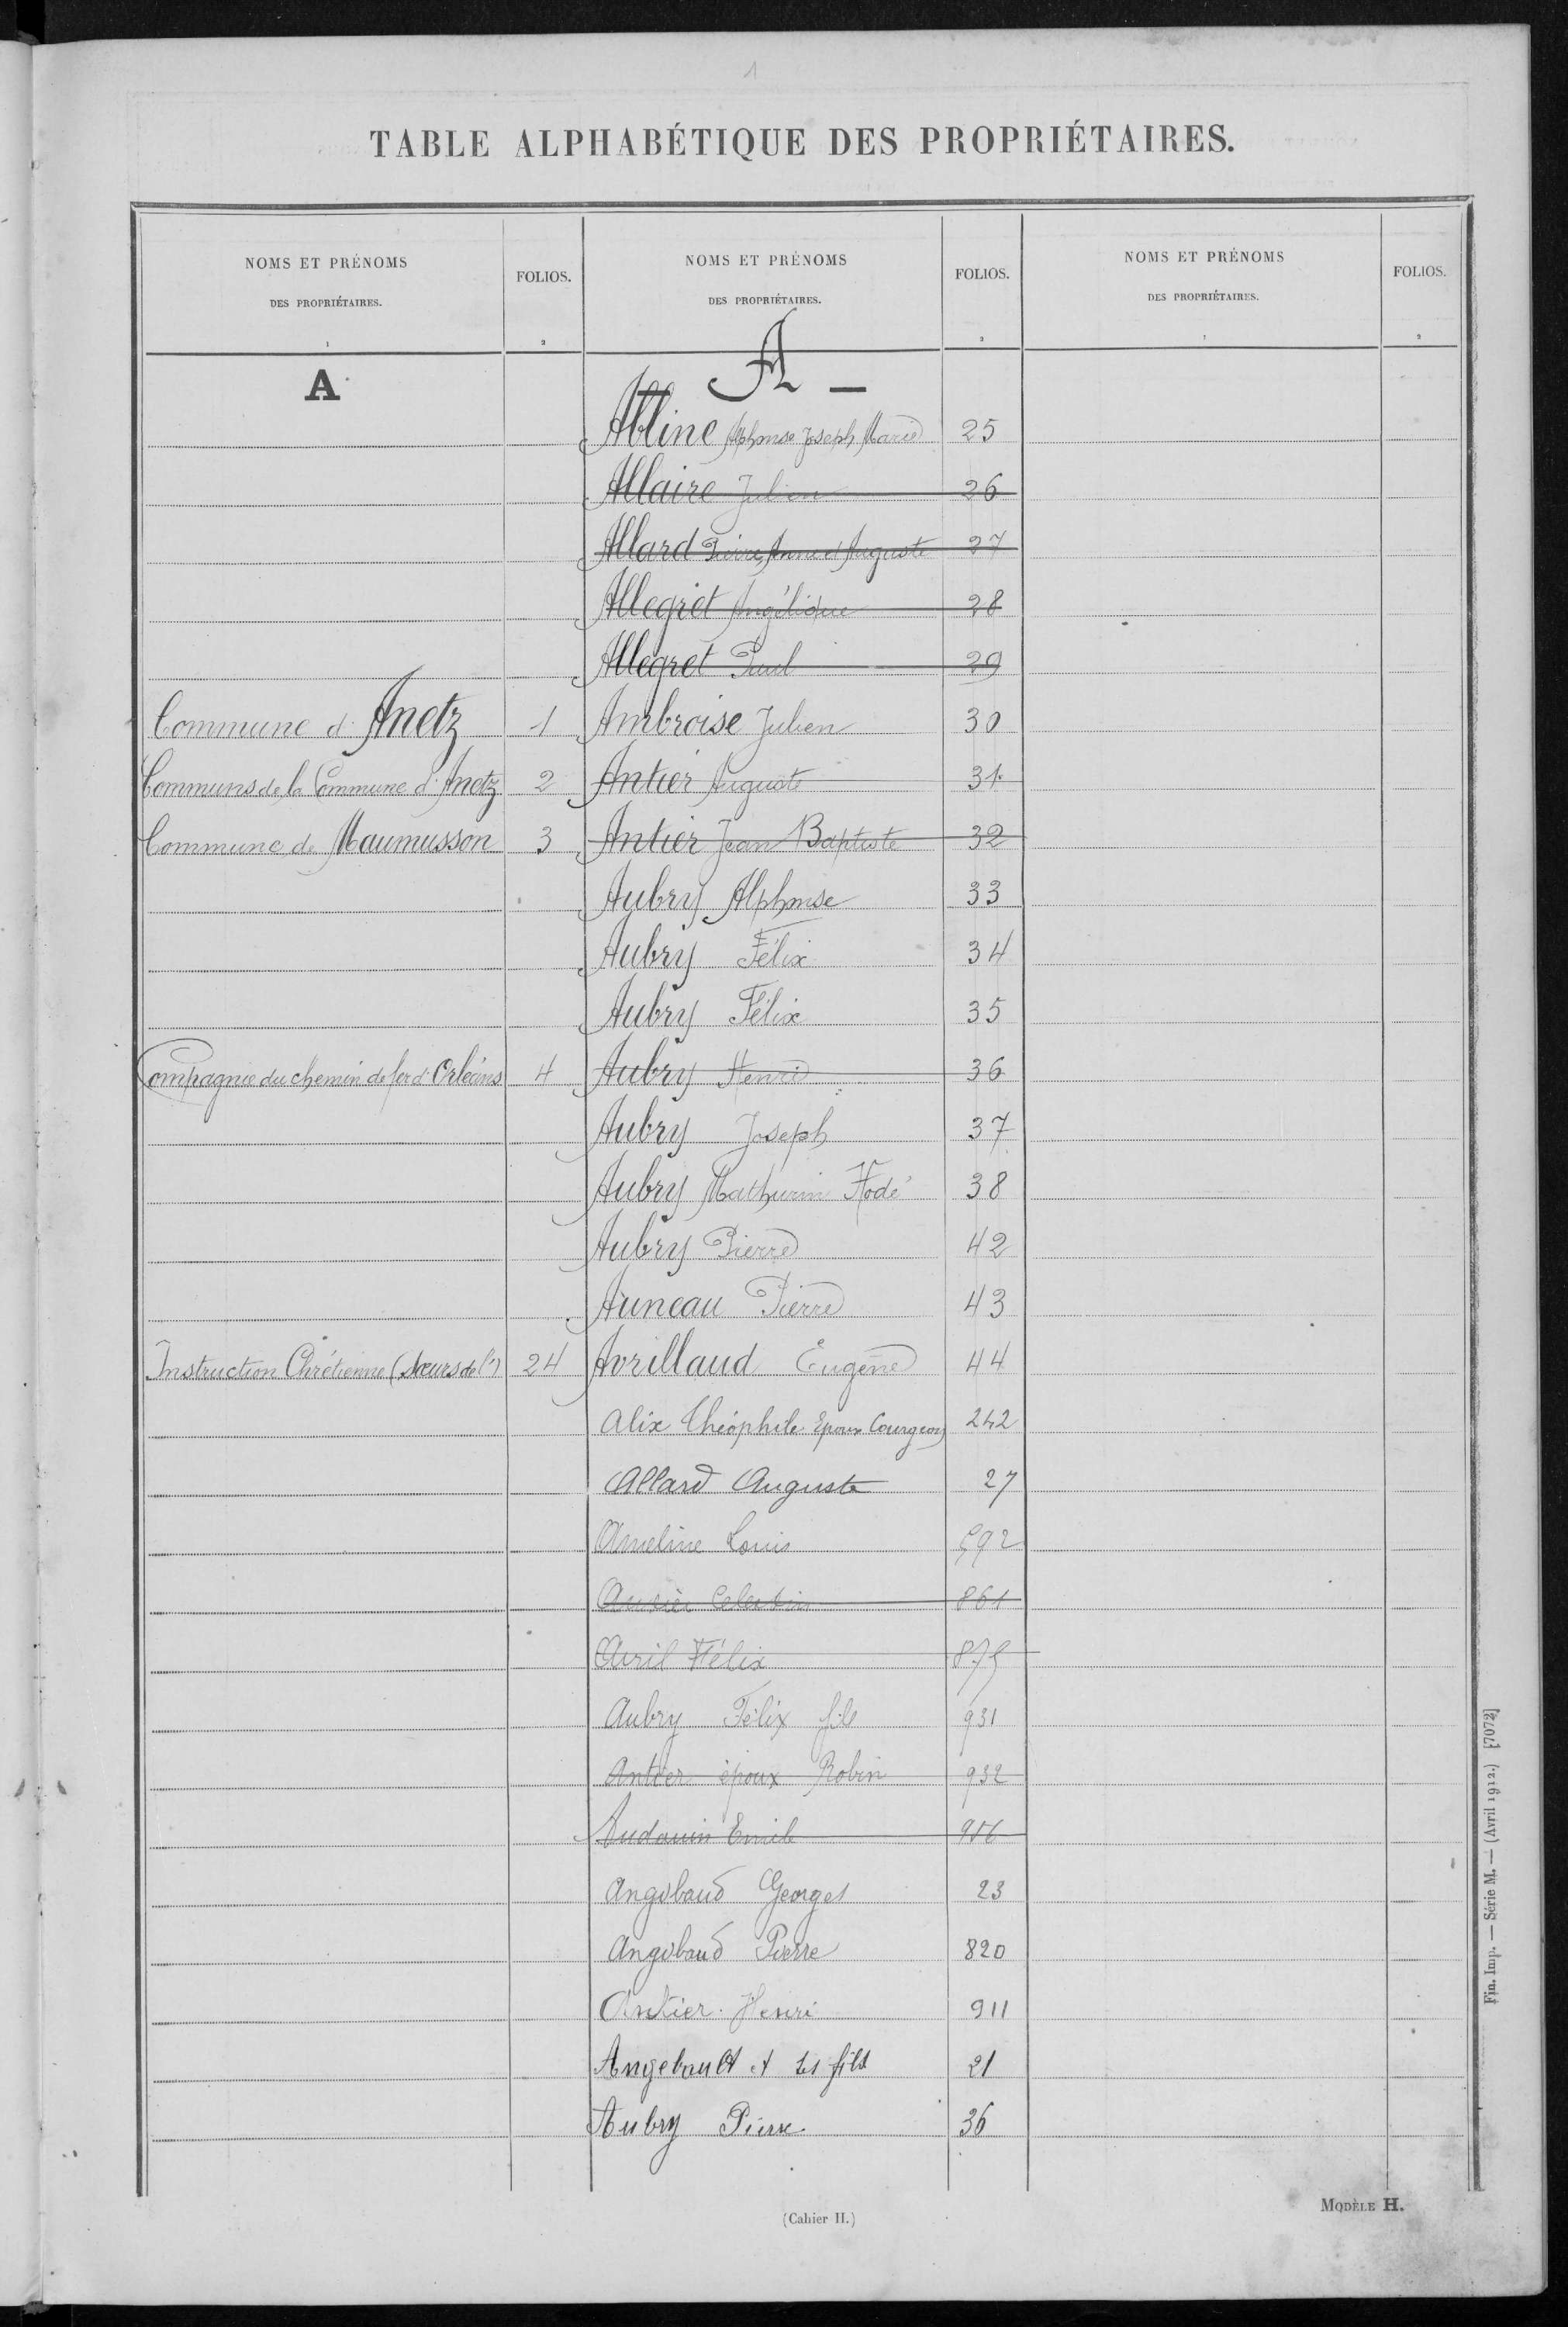 1
TABLE ALPHABÉTIQUE DES PROPRIÉTAIRES.
NOMS ET PRÉNOMS
DES PROPRIÉTAIRES.
1
FOLIOS.
2
A
Commune d'Anetz 1
Communs de la Commune d'Anetz 2
Commune de Maumusson 3
Compagnie du chemin de fer d'Orléans 4
Instruction Chrétienne (Sœurs de l') 24
NOMS ET PRÉNOMS
DES PROPRIÉTAIRES.
FOLIOS.
2
A
Abline Alphonse Joseph Marie 25
Allaire Julien 26
Allard Pierre, Anne et Auguste 27
Allegret Angélique 28
Allegret Paul 29
Ambroise Julien 30
Antier Auguste 31
Antier Jean Baptiste 32
Aubry Alphonse 33
Aubry Félix 34
Aubry Félix 35
Aubry Henri 36
Aubry Joseph 37
Aubry Mathurin Hodé 38
Aubry Pierre 42
Auneau Pierre 43
Avrillaud Eugène 44
Alix Théophile Epoux Courgeon 242
Allard Auguste 27
Ameline Louis 592
Celestin 861
Avril Félix 875
Aubry Félix fils 931
Antier époux Robin 932
Audouin Emile 956
Angebaud Georges 23
Angebaud Pierre 820
Antier Henri 911
Angebault et ses fils 21
Aubry Pierre 36
NOMS ET PRÉNOMS
DES PROPRIÉTAIRES.
1
FOLIOS.
2
Fin. Imp. — Série M. — (Avril 1912.) [7072]
(Cahier II.)
MODÈLE H.